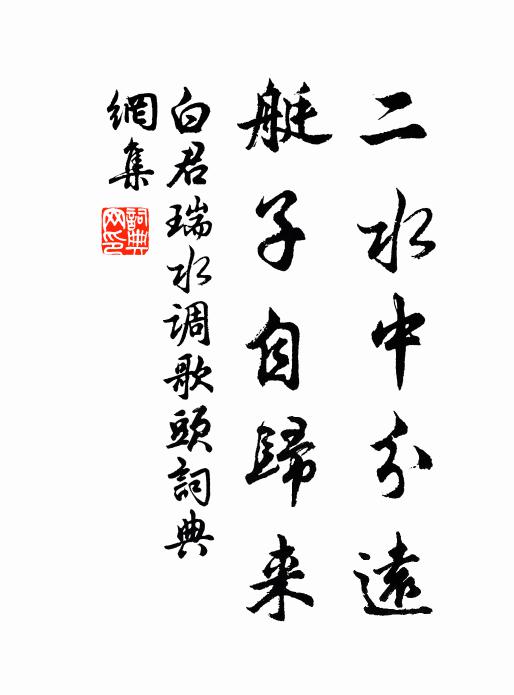 二水中分遠
艇子自歸来
白君瑞水调歌頭詞典
網集
詞典網印